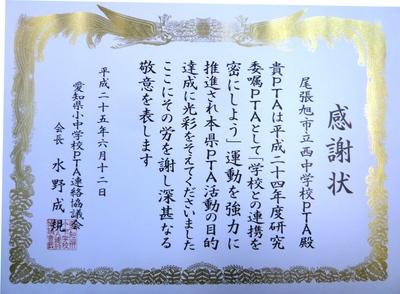 感謝状
尾張旭市立西中学校PTA殿
貴PTAは平成二十四年度研究
委嘱PTAとして「学校との連携を
密にしよう」運動を強力に
推進され本県PTA活動の目的
達成に光彩をそえてくださいました
ここにその労を謝し深甚なる
敬意を表します
平成二十五年六月十二日
愛知県小中学校PTA連絡協議会
会長 水野成規